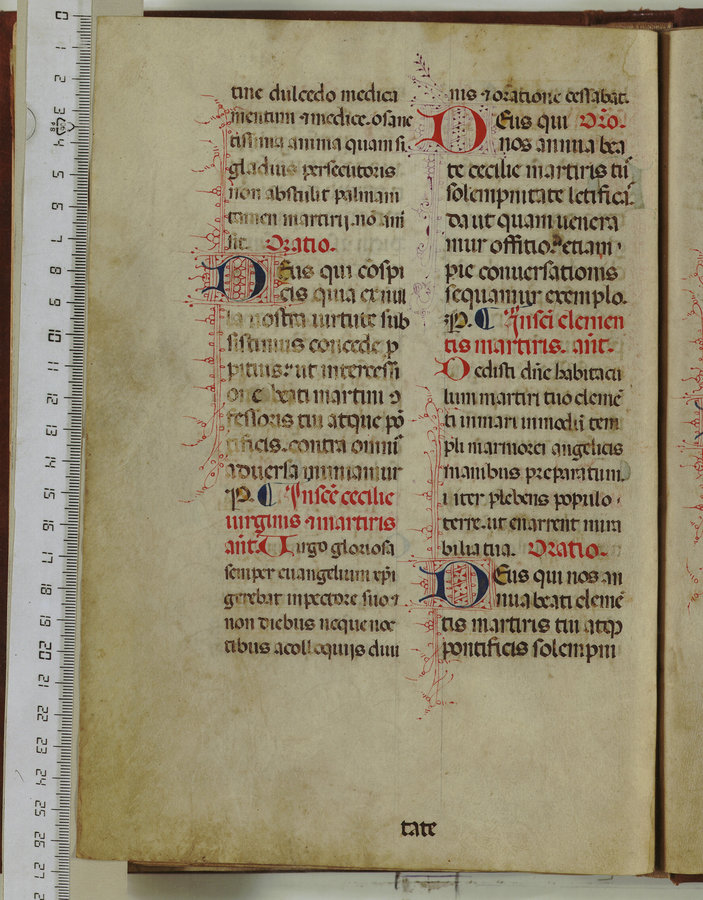 tine dulcedo medica
mentum ⁊ medice. o sanc
tissima anima quam si
gladius persecutoris
non abstulit palmam
tamen martirij. nō ami
sit. Oratio.
DEus qui cōspi
cis quia ex nul
la nostra uirtute sub
sistimus concede ꝓ
pitius. ut intercessi
one beati martini ꝯ
fessoris tui atque pō
tificis. contra omnia
aduersa muniamur
P. ¶ In scē cecilie
uirginis ⁊ martiris
añt. Uirgo gloriosa
semper euangelium xp̄i
gerebat in pectore suo ⁊
non diebus neque noc
tibus a colloquijs diui
nis ⁊ oratione cessabat.
DEus qui Oro.
nos annua bea
te cecilie martiris tū
solempnitate letificā.
da ut quam uenera
mur offitio. etiam
pie conuersationis
sequamur exemplo.
P. ¶ In scī clemen
tis martiris. añt.
Dedisti dñe habitacu
lum martiri tuo clemē
ti in mari in modū tem
pli marmorei angelicis
manibus preparatum.
iter prebens populo
terre. ut enarrent mira
bilia tua. Oratio.
DEus qui nos an
nua beati clemē
tis martiris tui atqꝫ
pontificis solempni
tate
0 1 2 3 4 5 6 7 8 9 10 11 12 13 14 15 16 17 18 19 20 21 22 23 24 25 26 27